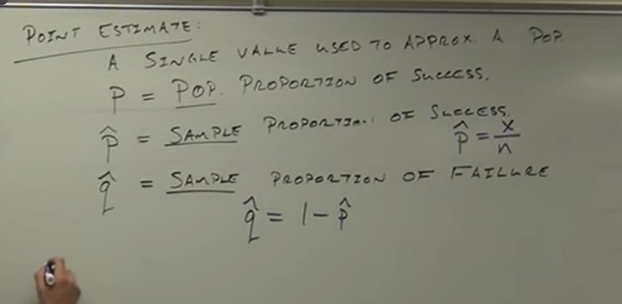 POINT ESTIMATE:
A SINGLE VALUE USED TO APPROX. A POP.
P = POP. PROPORTION OF SUCCESS.
p̂ = SAMPLE PROPORTION OF SUCCESS. p̂ = x/n
q̂ = SAMPLE PROPORTION OF FAILURE
q̂ = 1 - p̂